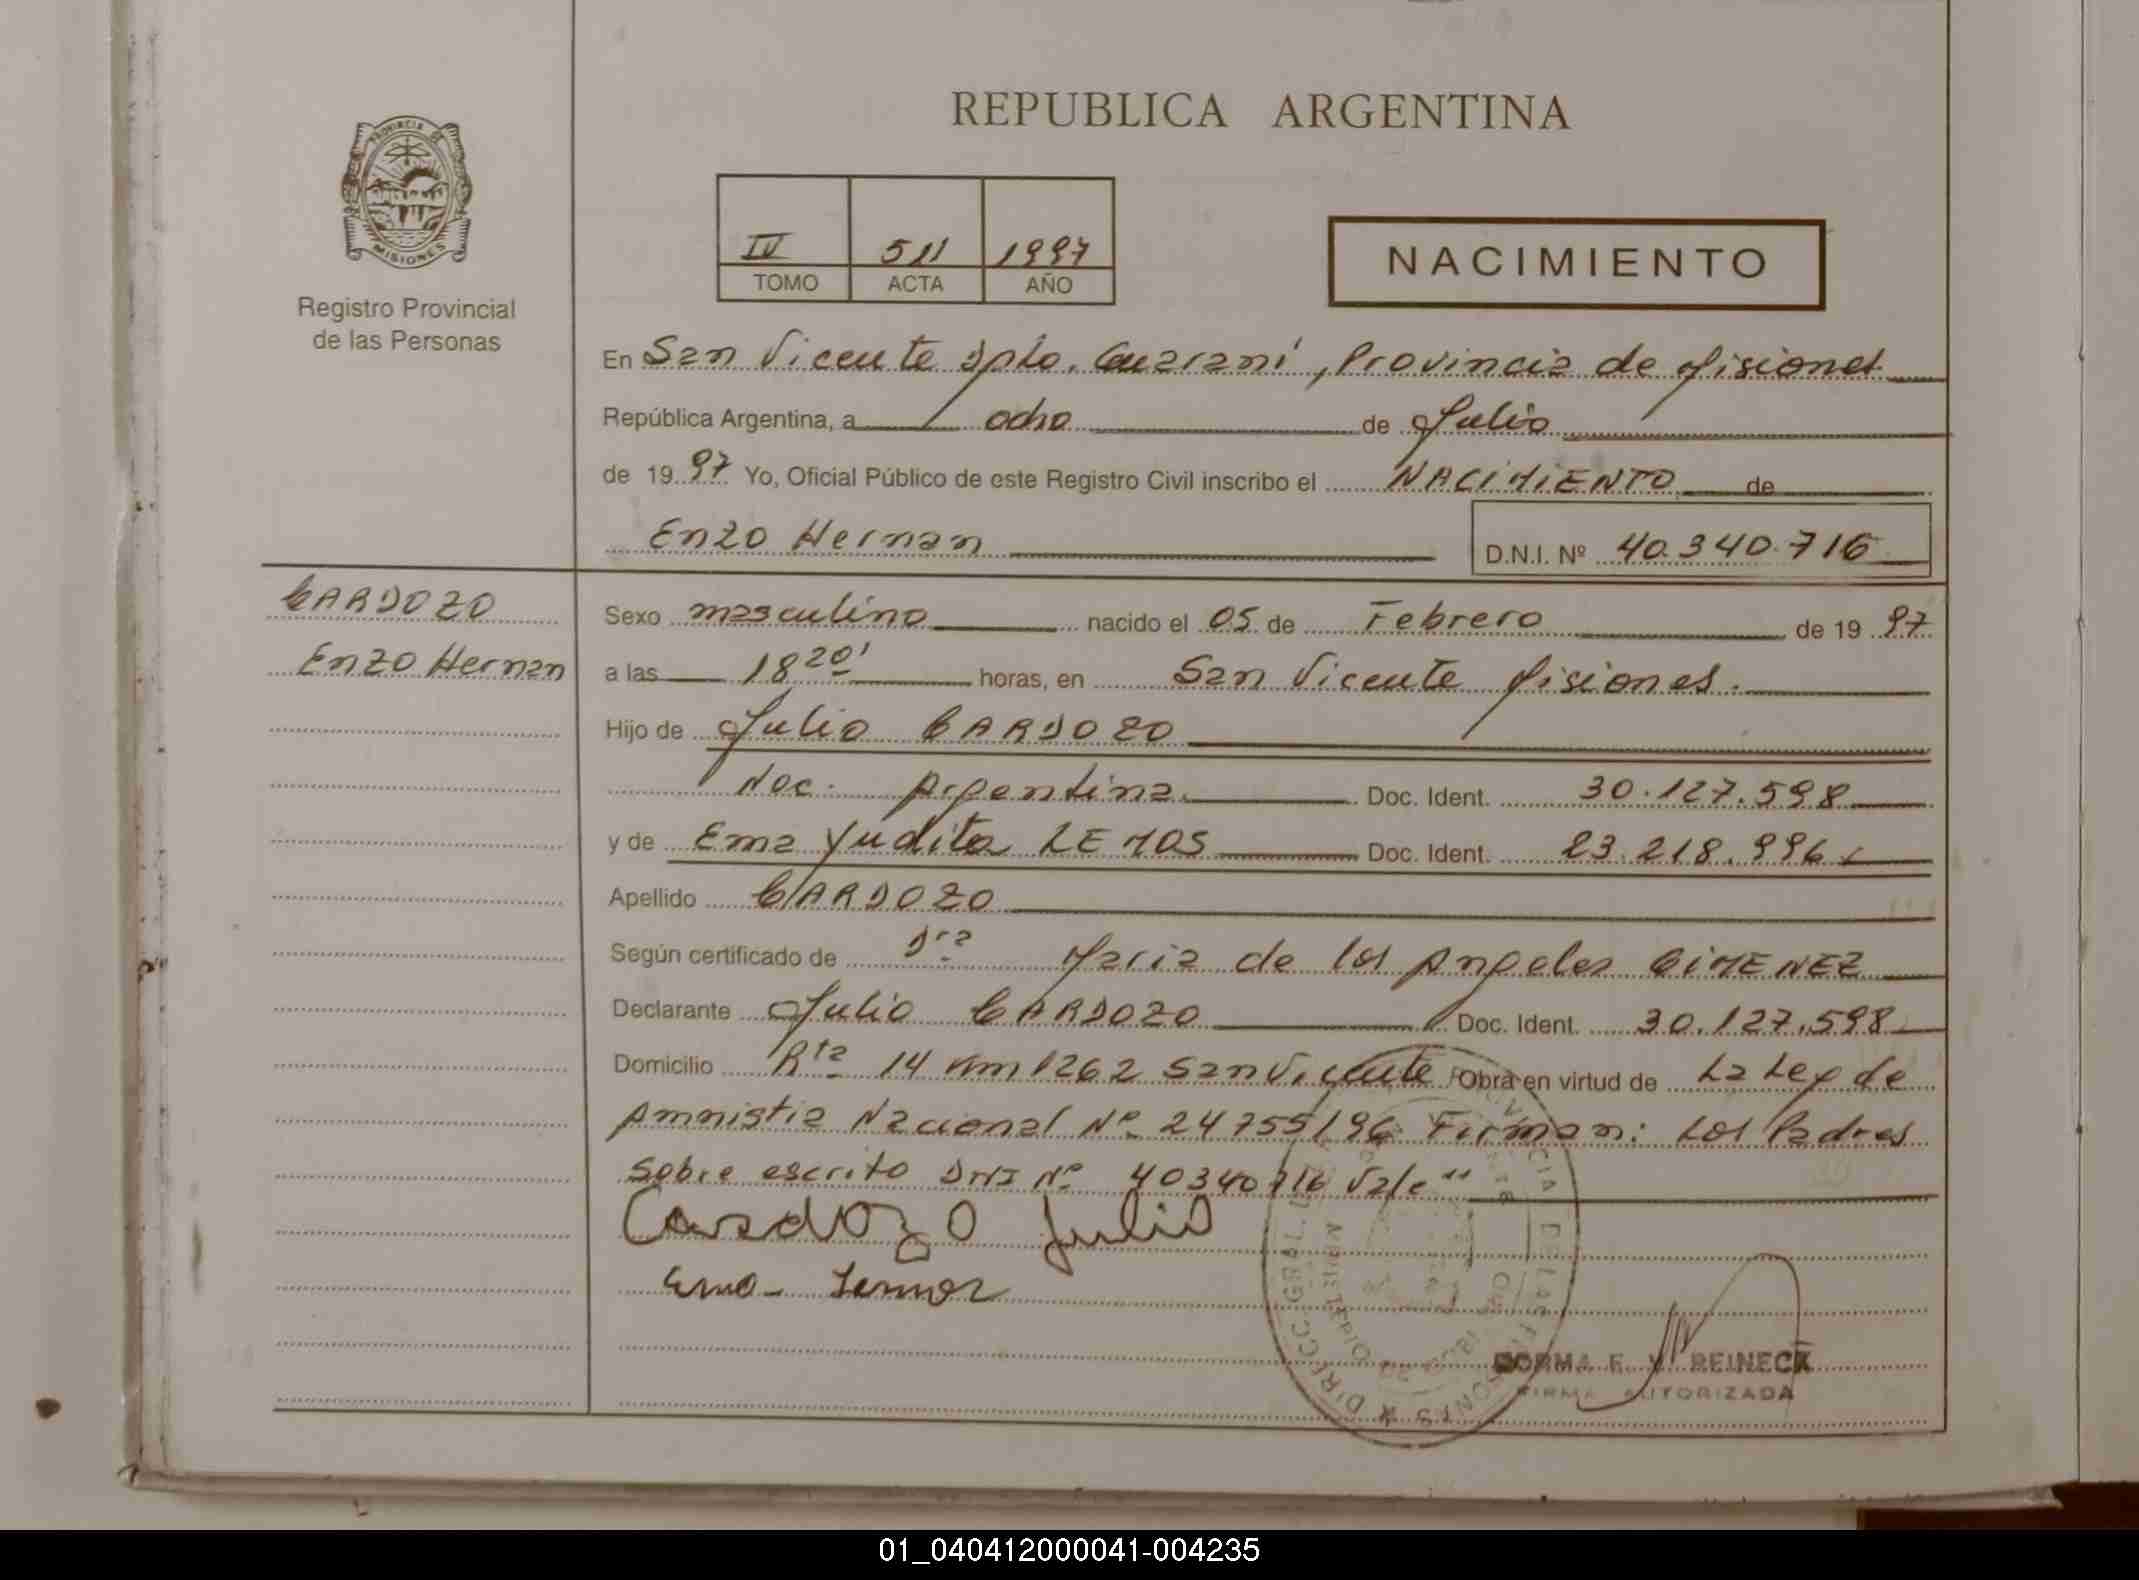 REPUBLICA ARGENTINA
PROVINCIA DE
MISIONES
Registro Provincial
de las Personas
IV 511 1997
TOMO ACTA AÑO
NACIMIENTO
En San Vicente Dpto. Guaraní, Provincia de Misiones
República Argentina, a ocho de Julio
de 19 97 Yo, Oficial Público de este Registro Civil inscribo el NACIMIENTO de
Enzo Hernan D.N.I. Nº 40.340.716
CARDOZO
Enzo Hernan
Sexo masculino nacido el 05 de Febrero de 19 97
a las 18 20' horas, en San Vicente Misiones.
Hijo de Julio CARDOZO
Nac. Argentina Doc. Ident. 30.127.598
y de Ema Yudita LEMOS Doc. Ident. 23.218.996
Apellido CARDOZO
Según certificado de Dra Maria de los Angeles GIMENEZ
Declarante Julio CARDOZO Doc. Ident. 30.127.598
Domicilio Rta 14 Km 1262 San Vicente Obra en virtud de La Ley de
Amnistia Nacional Nº 24755/96 Firman: Los Padres
Sobre escrito DNI Nº 40340716 Vale"
Cardozo Julio
Ema Lemos
REINECK
FIRMA AUTORIZADA
01_040412000041-004235